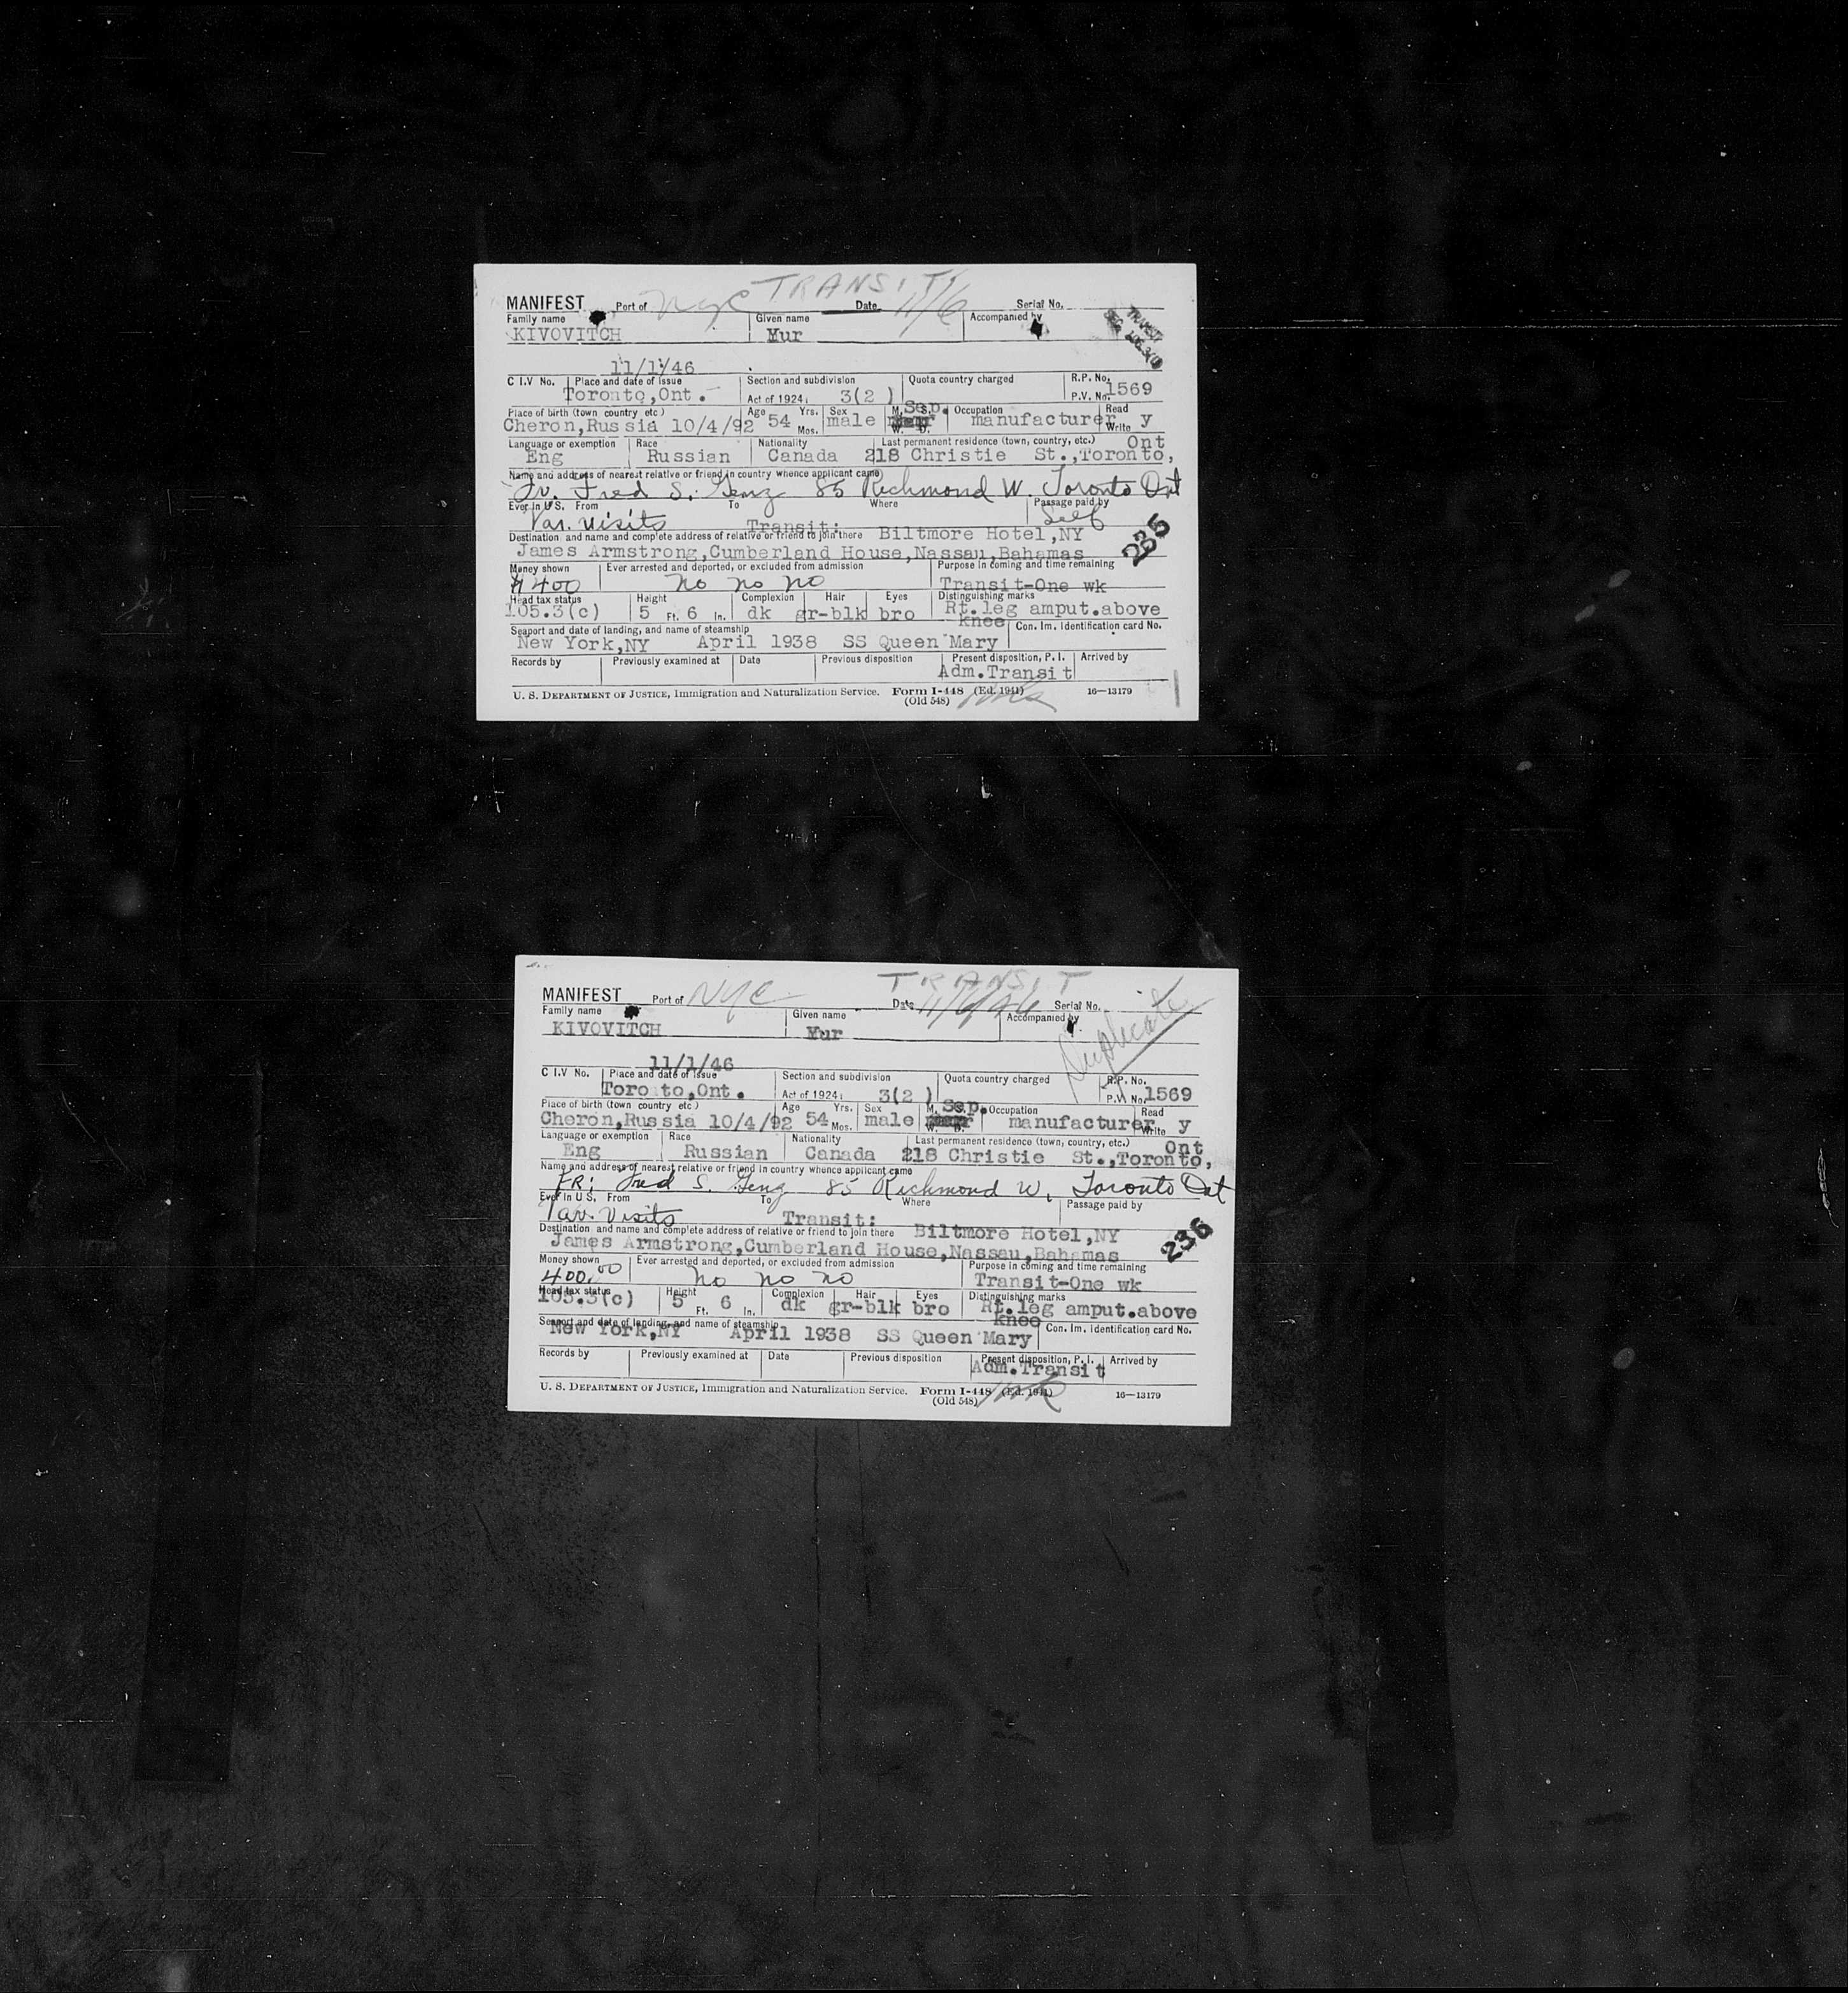 TRANSIT
MANIFEST Port of NYC Date 11/6 Serial No.
Family name Given name Accompanied by
KIVOVITCH Mur
TRANSIT
SEC.
11/1/46
C I.V No. Place and date of issue Section and subdivision Quota country charged R.P. No.
Toronto,Ont. Act of 1924: 3(2 ) P.V. No. 1569
Place of birth (town country etc) Age Yrs. Sex M. S. Sep. Occupation Read
Cheron,Russia 10/4/92 54 Mos. male W. D. manufacturer Write y
Language or exemption Race Nationality Last permanent residence (town, country, etc.) Ont
Eng Russian Canada 218 Christie St.,Toronto,
Name and address of nearest relative or friend in country whence applicant came
Fred S. 85 Richmond W. Toronto Ont
Ever in U S. From To Where Passage paid by
Var. visits Transit: Self
Destination and name and complete address of relative or friend to join there Biltmore Hotel,NY
James Armstrong,Cumberland House,Nassau,Bahamas
Money shown Ever arrested and deported, or excluded from admission Purpose in coming and time remaining
$400 no no no Transit-One wk
Head tax status Height Complexion Hair Eyes Distinguishing marks
105.3(c) 5 Ft. 6 In. dk gr-blk bro Rt.leg amput.above
knee Con. Im. Identification card No.
Seaport and date of landing, and name of steamship
New York,NY April 1938 SS Queen Mary
Records by Previously examined at Date Previous disposition Present disposition, P. I. Arrived by
Adm.Transit
U. S. Department of Justice, Immigration and Naturalization Service. Form I-448 (Ed. 1941) 16—13179
(Old 548)
TRANSIT
MANIFEST Port of NYC Date 11/6/46 Serial No.
Family name Given name Accompanied by
KIVOVITCH Mur
Duplicate
11/1/46
C I.V No. Place and date of issue Section and subdivision Quota country charged R.P. No.
Toro to,Ont. Act of 1924: 3(2 ) P.V. No. 1569
Place of birth (town country etc) Age Yrs. Sex M. S. Sep. Occupation Read
Cheron,Russia 10/4/92 54 Mos. male W. D. manufacturer Write y
Language or exemption Race Nationality Last permanent residence (town, country, etc.) Ont
Eng Russian Canada 218 Christie St.,Toronto,
Name and address of nearest relative or friend in country whence applicant came
FR: Fred S. 85 Richmond W, Toronto Ont
Ever in U S. From To Where Passage paid by
Var. Visits Transit:
Destination and name and complete address of relative or friend to join there Biltmore Hotel,NY
James Armstrong,Cumberland House,Nassau,Bahamas
236
Money shown Ever arrested and deported, or excluded from admission Purpose in coming and time remaining
400.00 no no no Transit-One wk
Head tax status Height Complexion Hair Eyes Distinguishing marks
105.3(c) 5 Ft. 6 In. dk gr-blk bro Rt.leg amput.above
knee Con. Im. Identification card No.
Seaport and date of landing, and name of steamship
New York,NY April 1938 SS Queen Mary
Records by Previously examined at Date Previous disposition Present disposition, P. I. Arrived by
Adm.Transit
U. S. Department of Justice, Immigration and Naturalization Service. Form I-448 (Ed. 1941) 16—13179
(Old 548)